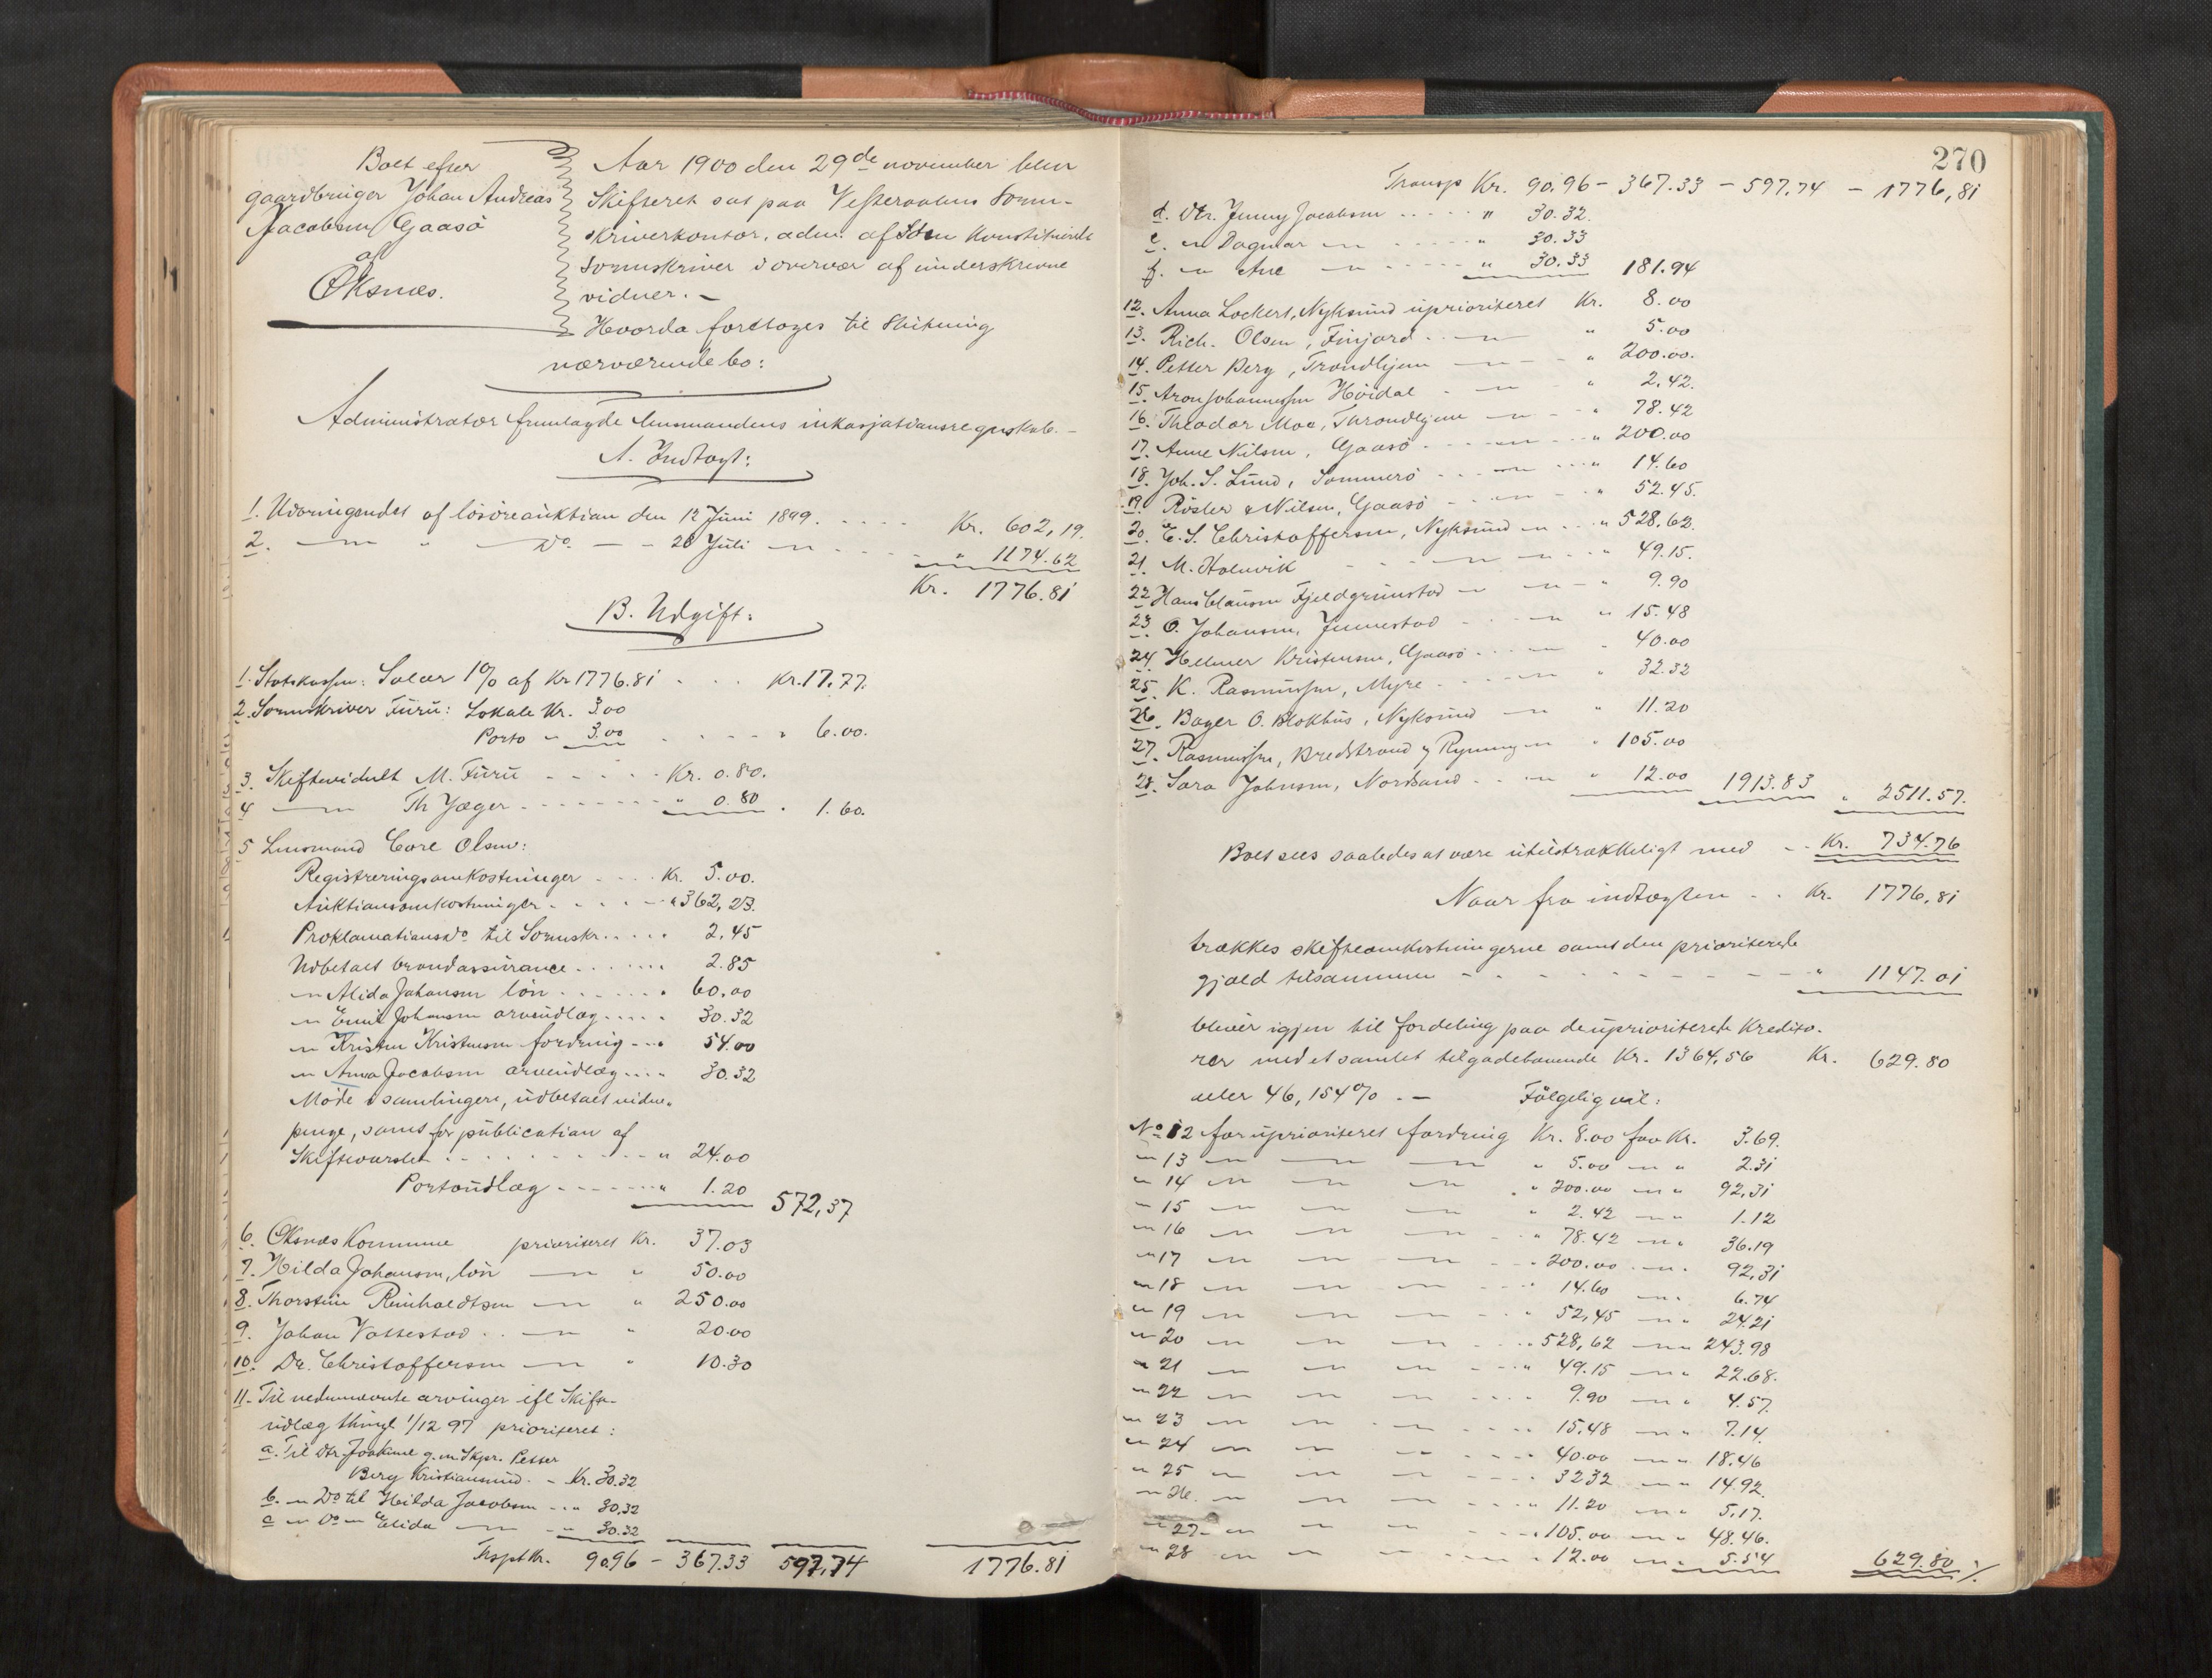 Boet efter
gaardbruger Johan Andreas
Jacobsen Gaasö
af
Öksnæs.
Aar 1900 den 29de november blev
Skifteret sat paa Vesteraalens Soren-
skriverkontor, adm. af den Konstituerede
Sorenskriver i overvær af underskrevne
vidner. —
Hvorda foretoges til Slutning
nærværende bo:
Administrator fremlagde lensmandens inkassationsregnskab. -
A. Indtægt:
1. Udbringendet af lösöreauktion den 12 Juni 1899. . . . . Kr. 602,19.
2. — " — Do. — - 26 Juli — . . . . " 1174.62
Kr. 1776.81
B. Udgift:
1. Statskassen: Salær 1 % af Kr 1776.81 . . . Kr. 17.77.
2. Sorenskriver Furu: Lokale Kr. 3.00
Porto - 3.00 . . . . " 6.00.
3. Skiftevidnet M. Furu - - - - - Kr. 0.80.
4 — Th Jæger - - - - - - - " 0.80 . 1.60.
5 Lensmand Tore Olsen:
Registreringsomkostninger . . . . Kr. 5.00.
Auktionsomkostninger . . . . - " 362,23.
Proklamationsdo. til Sorenskr. . . . . 2.45
Udbetalt brandassurance . . . . . . . 2.85
— Alida Johansen lön . . . . . . . 60.00
— Emil Johansen arveudlæg . . . . . 30.32
— Kristen Kristensen fordring - . . 54.00
— Anna Jacobsen arveudlæg . . . " 30.32
Möde i samlingen, udbetalt vidne-
penge, samt for publication af
Skifteværdet . . . . . . . . - " 24.00
Portoudlæg - - - - - - " 1.20 572,37
6. Öksnæs Kommune prioriteret Kr. 37.03
7. Hilda Johansen, lön — " 50.00
8. Thorstein Reinholdtsen — " 250.00
9. Johan Vottestad . . — " 20.00
10. Dr. Christoffersen — " 10.30
11. Til nedennævnte arvinger ifl Skifte-
udlæg thingl. 1/12 97 prioriteret:
a. Til dtr. Joakime g.m. Skpr. Petter
Berg Kristiansund . - Kr. 30.32
b. — Do til Hilda Jacobsen . . . " 30.32
c — Do — Elida — - " 30.32
Trspt Kr. 90.96 - 367.33 597,74 1776.81
270
Transp Kr. 90.96 - 367.33 - 597.74 - 1776,81
d. Dtr. Jenny Jacobsen . . . . . " 30.32.
e. — Dagmar — . . . . . " 30.33
f. — Ane — . . . . . " 30.33 181.94
12. Anna Lockert, Nyksund uprioriteret Kr. 8.00
13. Rich. Olsen, Finjord . . — " 5.00
14. Petter Berg, Trondhjem — - - " 200.00.
15. Aron Johannessen Höidal . — - " 2.42.
16. Theodor Moe, Throndhjem — - - " 78.42
17. Anne Nilsen, Gaasö . . . . — . . . " 200.00
18. Joh. S. Lund, Sommerö . . . — . . . " 14.60
19. Rösler & Nilsen, Gaasö . . . — . " 52.45.
20. E. S. Christoffersen, Nyksund — . . . " 528.62.
21. M. Holmvik . . . — — . . " 49.15.
22 Hans Clausen Fjeldgrunstad — — - " 9.90
23. O. Johansen, Jennestad . . . — " 15.48
24. Helmer Kristensen, Gaasö . . . . — " 40.00
25. K. Rasmussen, Myre . . . . — " 32.32
26. Bager O. Blokhus, Nyksund — " 11.20
27. Rasmussen, Bredstrand & Ryning — " 105.00
28. Sara Johnsen, Nordsand . . . — " 12.00 1913.83 " 2511.57.
Boet sees saaledes at være utilstrækkeligt med - . Kr. 734.76
Naar fra indtægten . . Kr. 1776.81
trækkes skifteomkostningerne samt den prioriterede
gjæld tilsammen - - - - - - - - - - " 1147.01
bliver igjen til fordeling paa de uprioriterede Kredito-
rer med et samlet tilgodehavende Kr. 1364,56 Kr. 629.80
eller 46,154 %. — Fölgelig vil:
No 12 for uprioriteret fordring Kr. 8.00 faa Kr. 3.69.
— 13 — — — " 5.00 — " 2.31
— 14 — — — " 200.00 — " 92,31
— 15 — — — " 2.42 — " 1.12
— 16 — — — " 78.42 — " 36.19
— 17 — — — " 200.00 — " 92,31
— 18 — — — " 14.60 — " 6.74
— 19 — — — " 52,45 — " 24.21
— 20 — — — " 528,62 — " 243.98
— 21 — — — " 49.15 — " 22.68.
— 22 — — — " 9.90 — " 4.57.
— 23 — — — " 15.48 — " 7.14.
— 24 — — — " 40.00 — " 18.46
— 25 — — — " 32 32 — " 14.92.
— 26. — — — " 11.20 — " 5,17.
— 27 — — — " 105.00 — " 48.46.
— 28 — — — " 12.00 — " 5.54 629.80 ./.